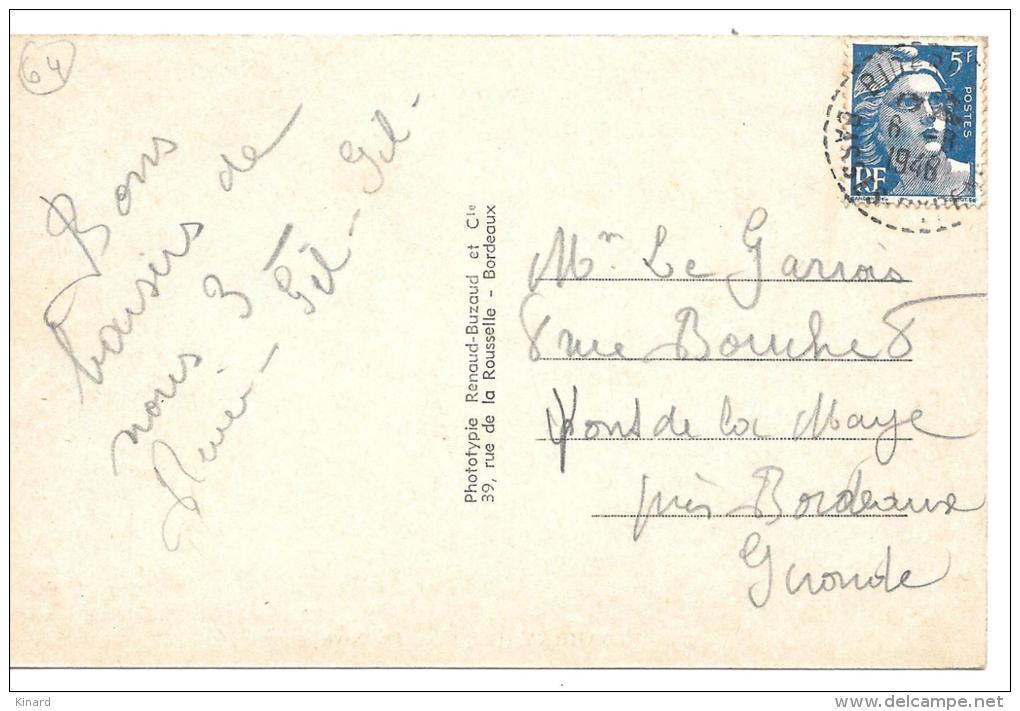 64
Bons
baisers de
nous 3
Gil - Gil -
Phototypie Renaud-Buzaud et Cie
39, rue de la Rousselle - Bordeaux
5F
POSTES
RF
6
1948
Mn Le Garrois
8 rue Bouchet
Pont de la Maye
près Bordeaux
Gironde
Kinard
delcampe.net